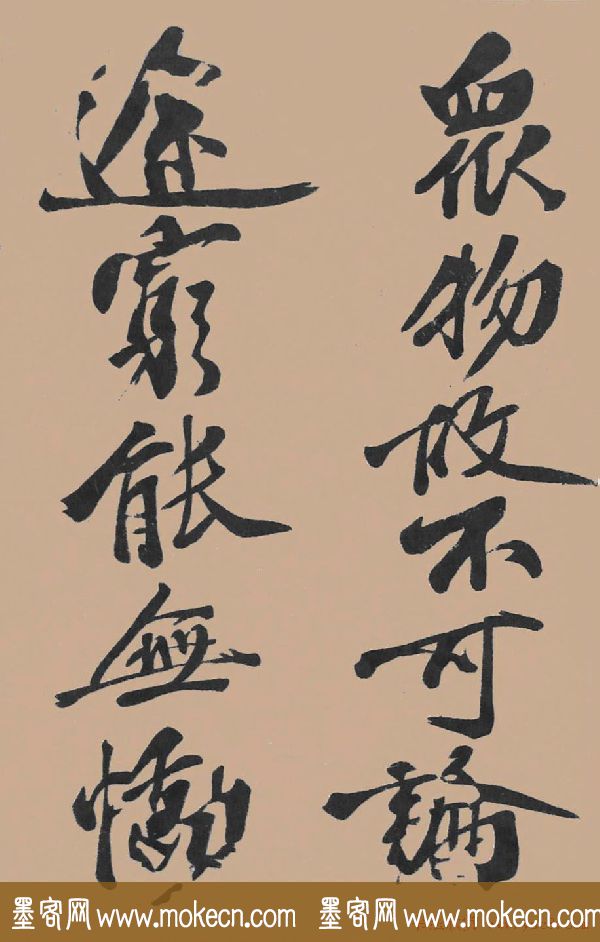 眾物故不可論
途窮能無慟
墨客网 www.mokecn.com 墨客网 www.mokecn.com